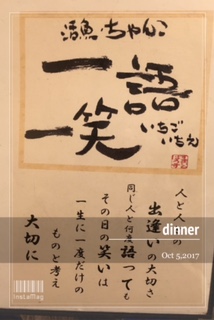 活魚・ちゃんこ
一語
一笑
いちご
いちえ
人と人
出逢いの大切さ
同じ人と何度語っても
その日の笑いは
一生に一度だけの
ものと考え
大切に
dinner
Oct 5,2017
InstaMag